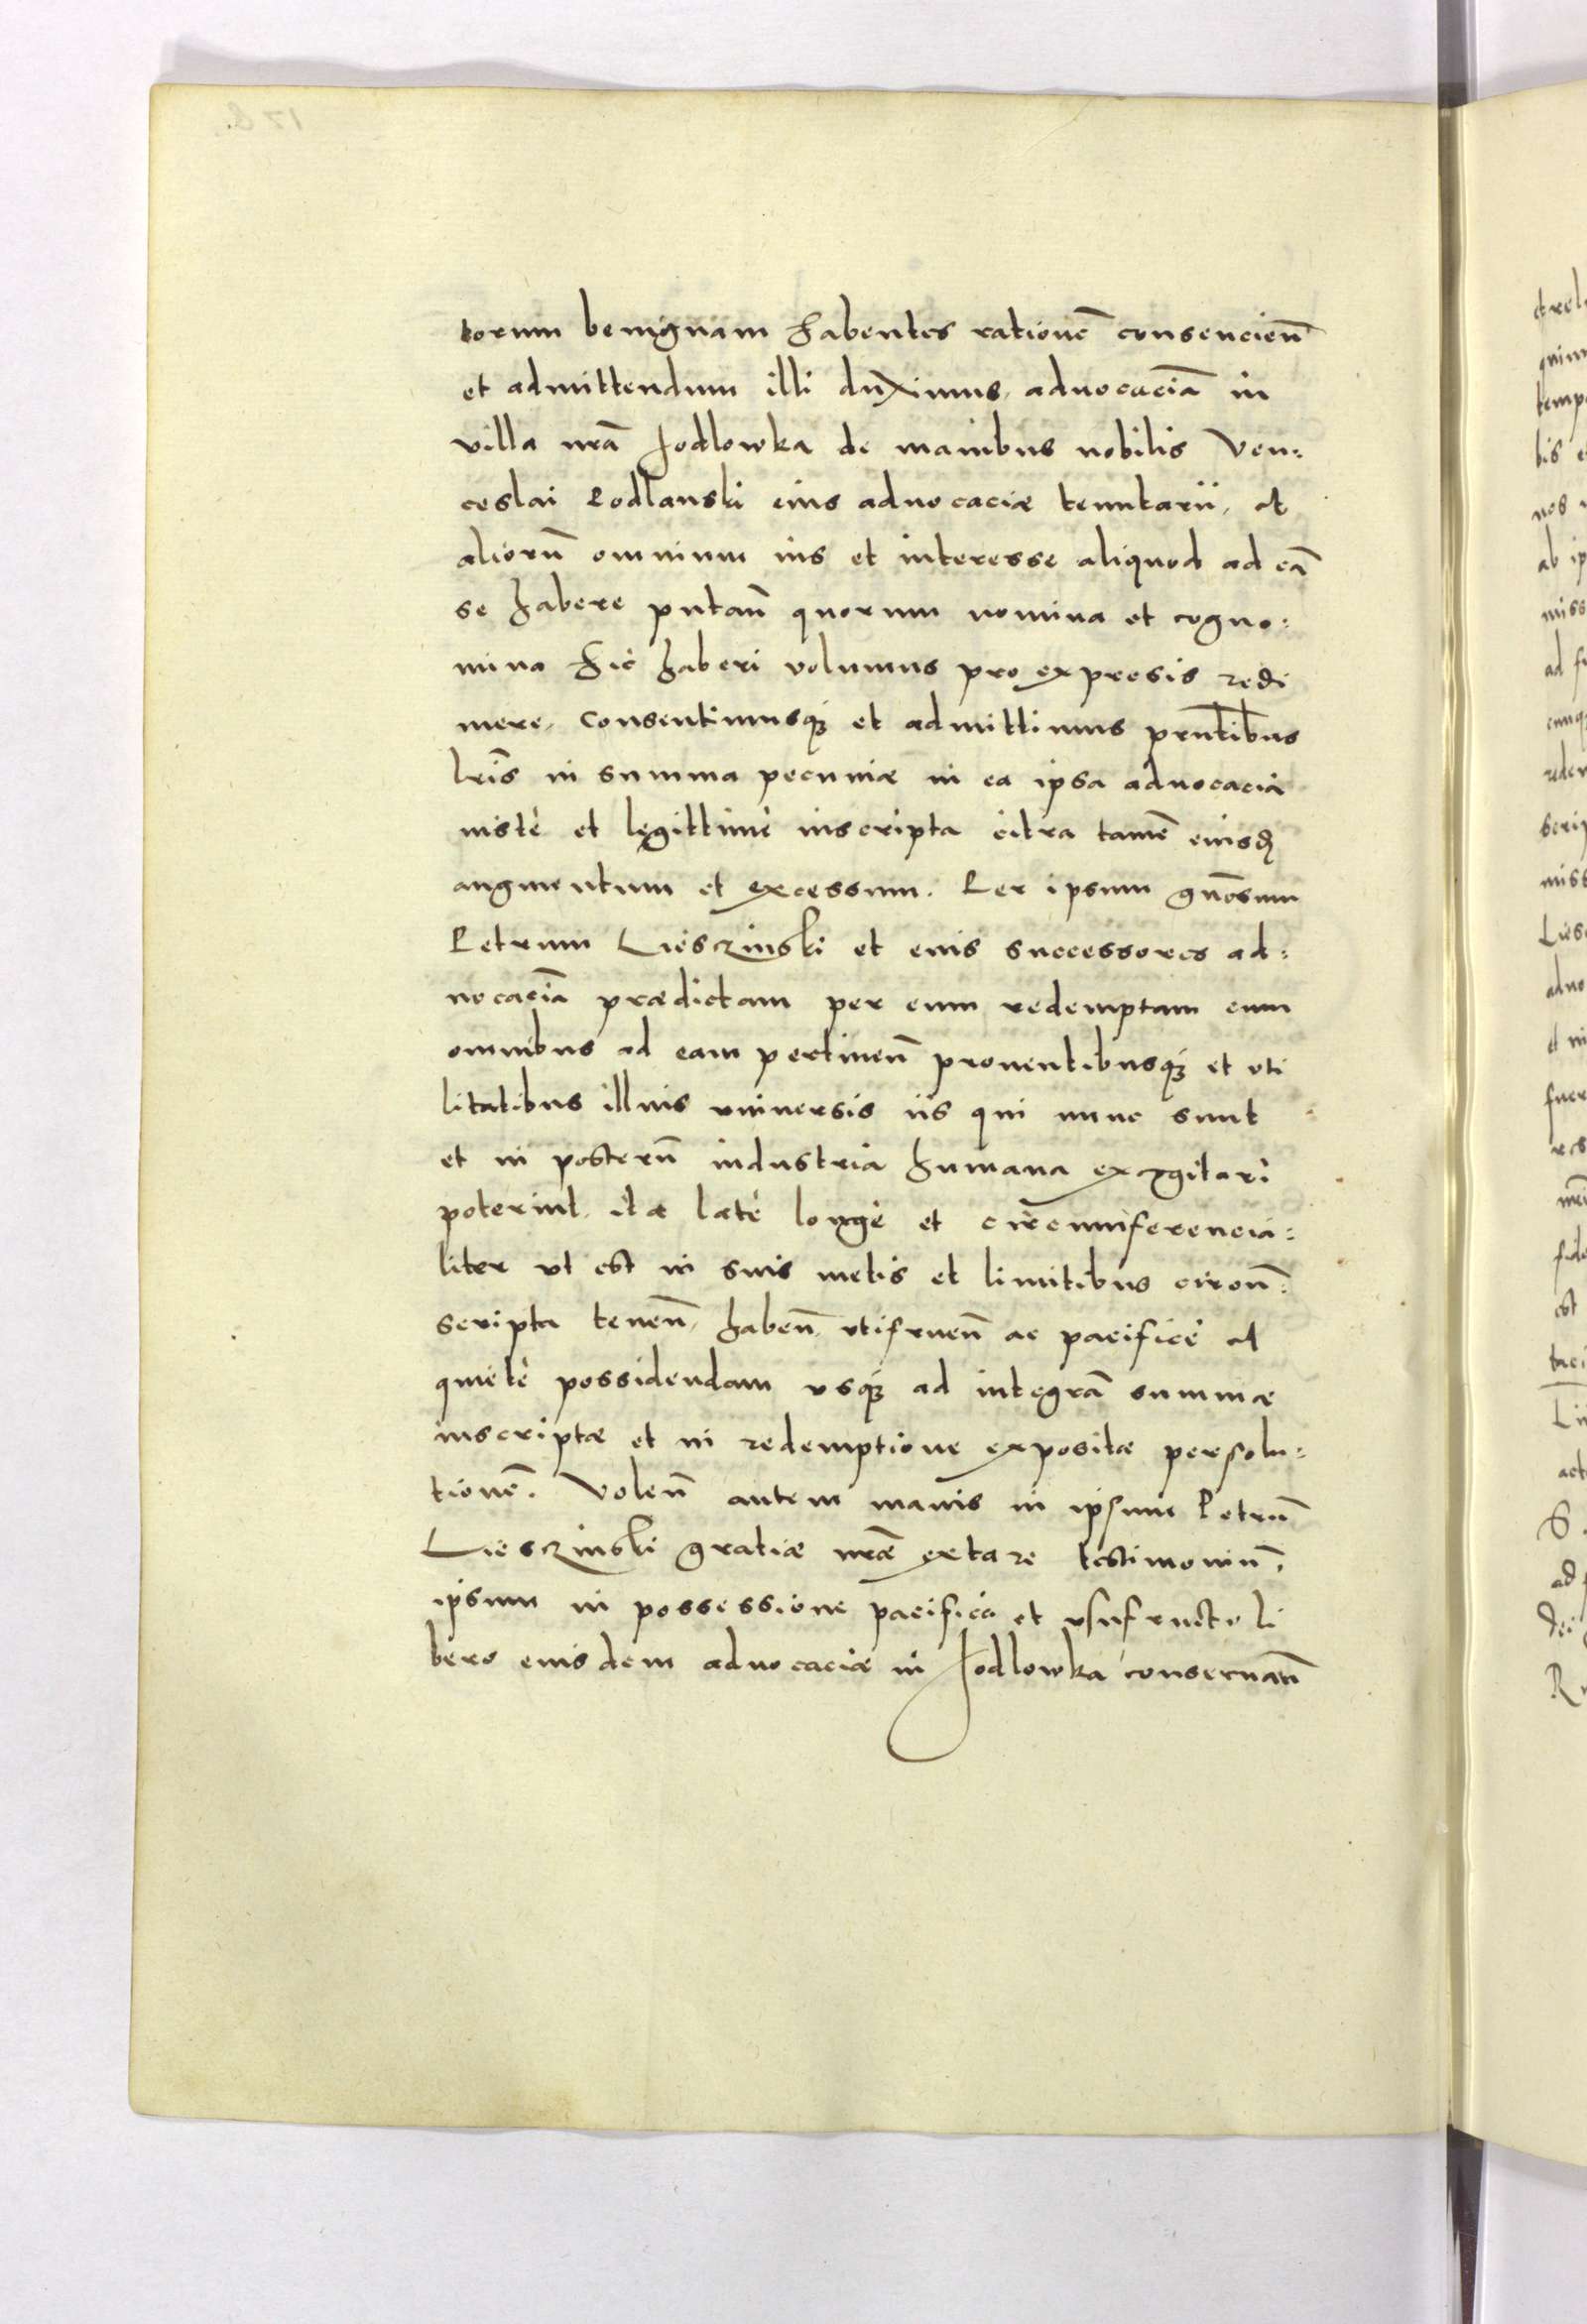 torum benignam habentes rationē consencieñ
et admittendum illi duximus, aduocaciā in
villa nrā Jodlowka de manibus nobilis Ven:
ceslai Podlanski eius aduocaciæ tenutarii, et
aliorū omnium ius et interesse aliquod ad eā
se habere putañ quorum nomina et cogno:
mina hic haberi volumus pro expresis redi
mere, Consentimusqȝ et admittimus prñtibus
lrīs in summa pecuniæ in ea ipsa aduocacia
iustè et legittimè inscripta citra tamē eiusdē
augmentum et excessum. Per ipsum gñosum
Petrum Lieszinski et eius successores ad:
uocaciā prædictam per eum redemptam cum
omnibus ad eam pertineñ prouentibusqȝ et uti
litatibus illius vniuersis iis qui nunc sunt
et in posterū industria humana excogitari
poterint, ita latè longè et circumferencia:
liter vt est in suis metis et limitibus circū:
scripta teneñ, habeñ, vtifrueñ ac pacificè et
quietè possidendam vsqȝ ad integrā summæ
inscriptæ et in redemptione expositæ persolu:
tionē. Voleñ autem maius in ipsum Petrū
Lieszinski gratiæ nræ extare testimoniū,
ipsum in possessione pacifica et vsufructu li
bero eiusdem aduocaciæ in Jodlowka conseruañ